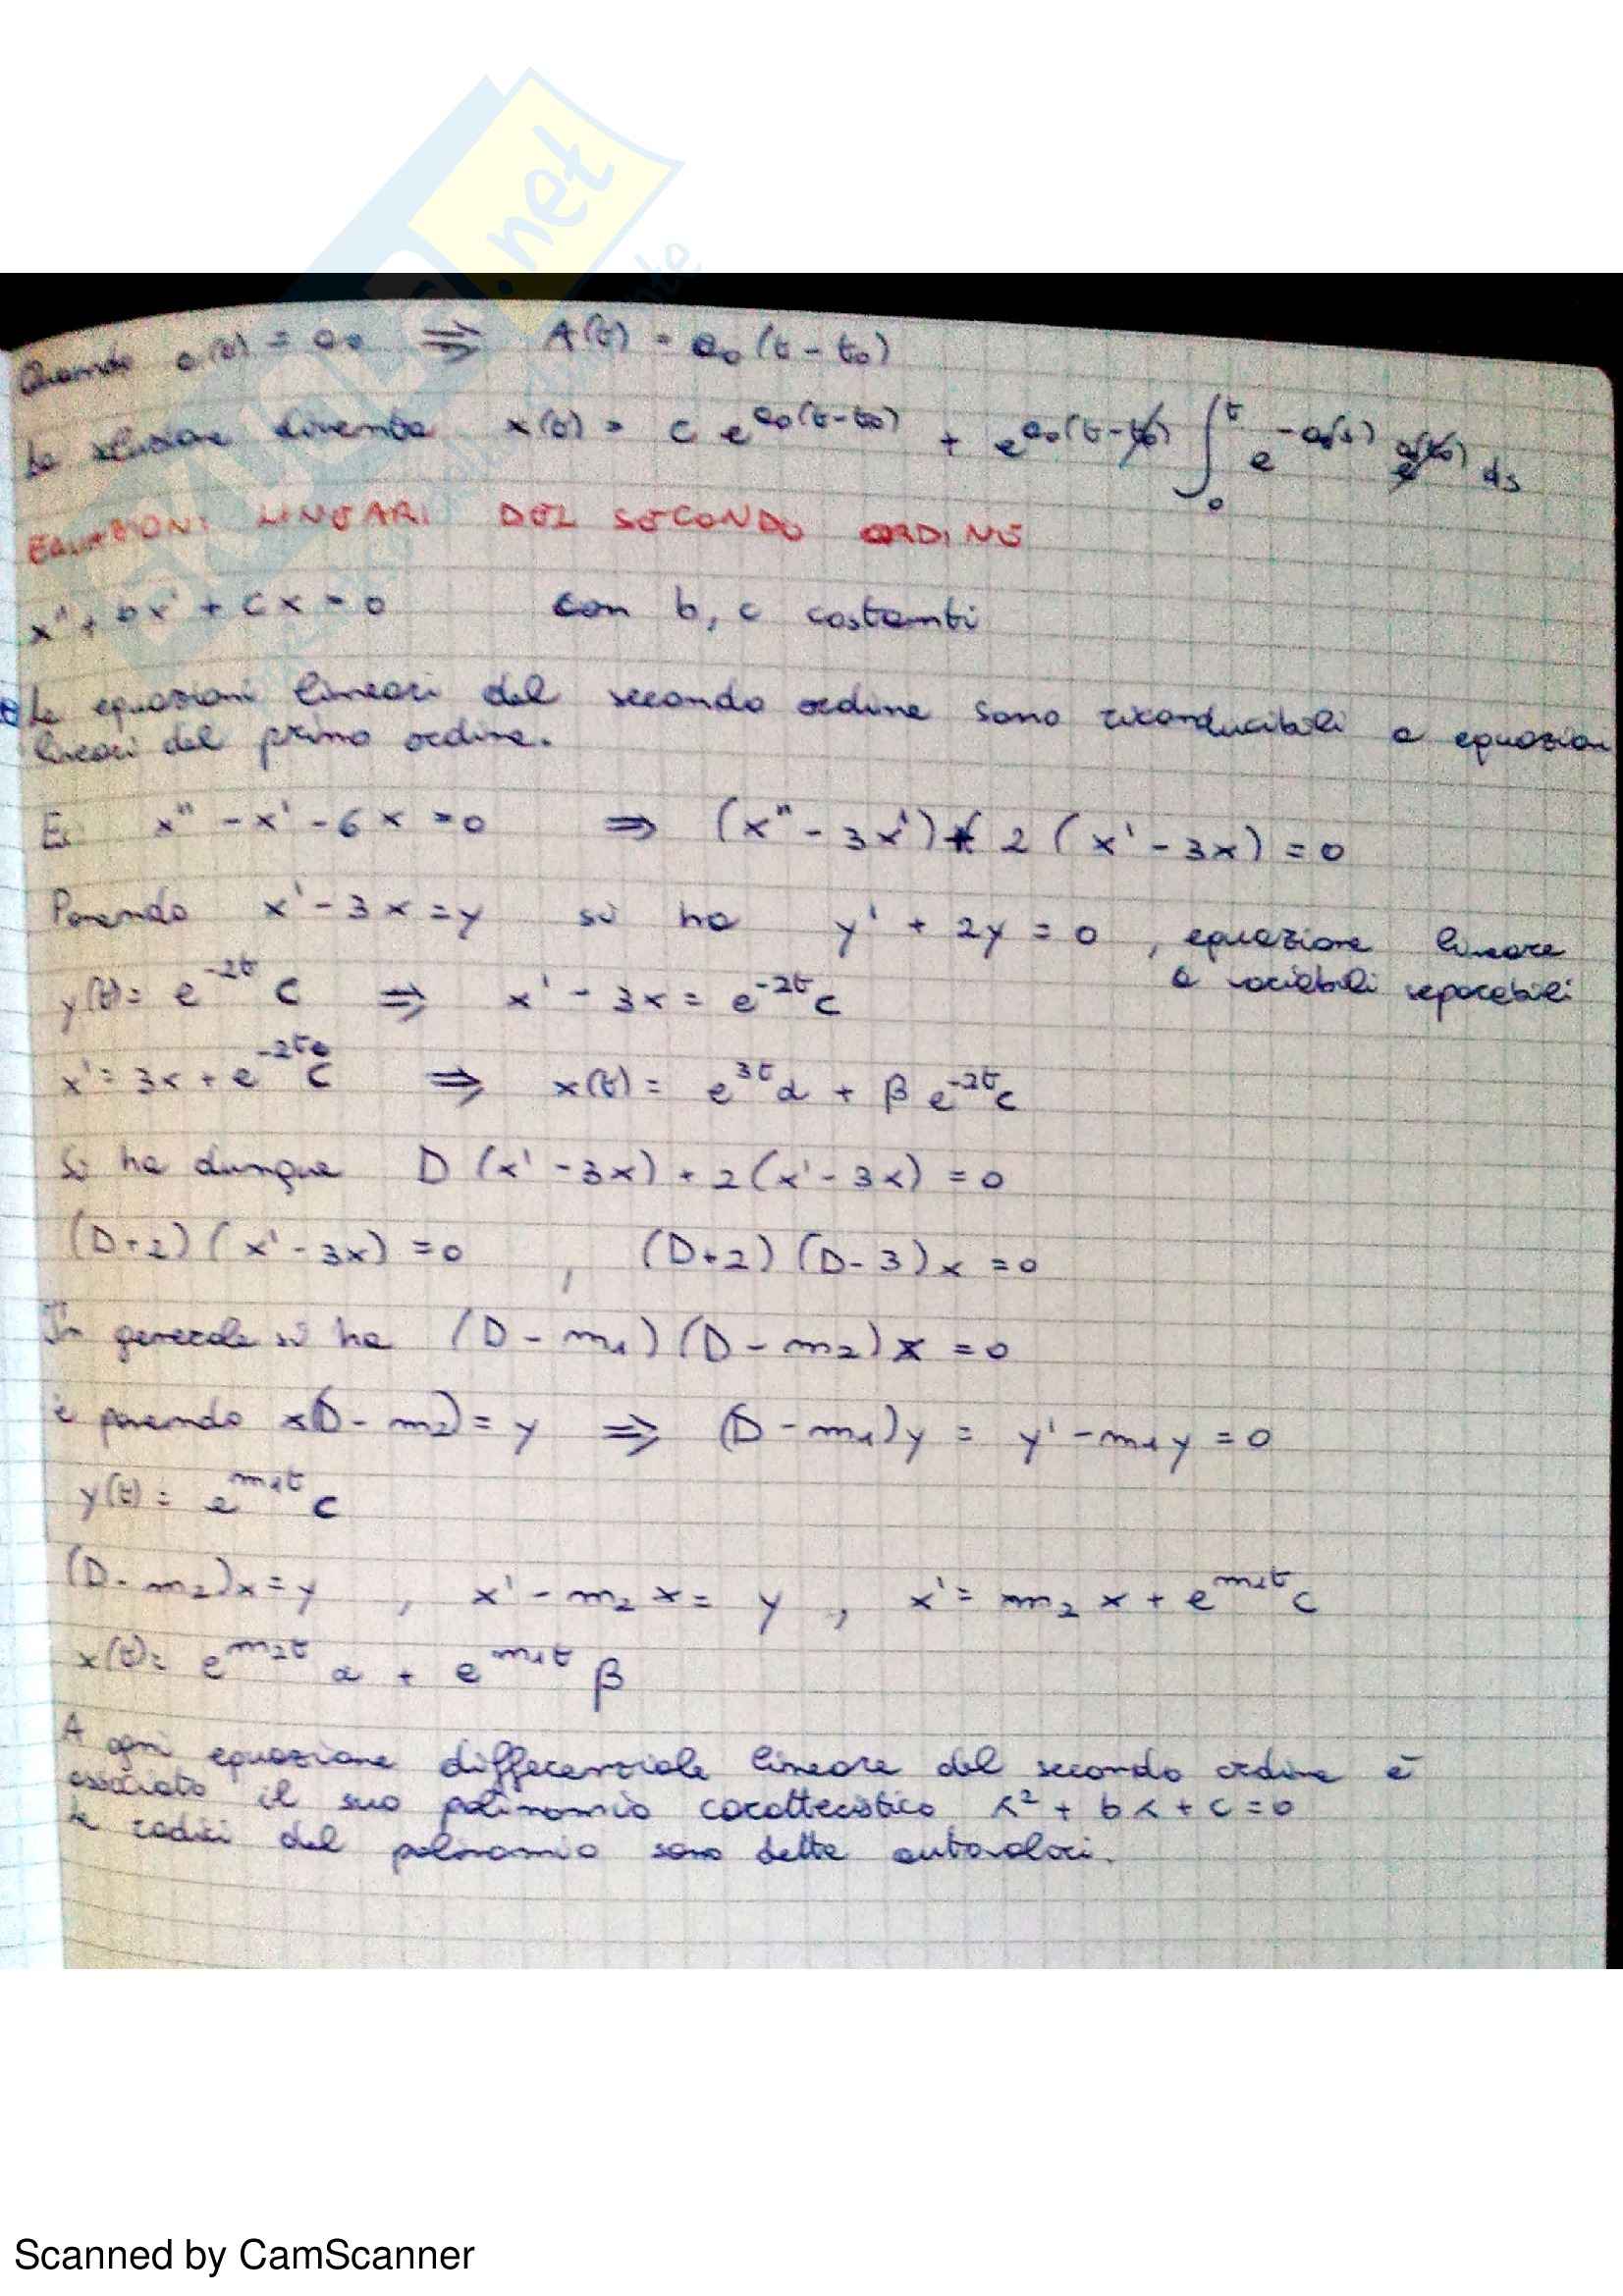 Quando a(t) = a₀ ⇒ A(t) = a₀(t - t₀)
La soluzione diventa x(t) = c e^{a₀(t-t₀)} + e^{a₀(t-t₀)} ∫₀^t e^{-a₀(s)} ds
EQUAZIONI LINEARI DEL SECONDO ORDINE
x'' + bx' + cx = 0 con b, c costanti
Le equazioni lineari del secondo ordine sono riconducibili a equazioni
lineari del primo ordine.
Es x'' - x' - 6x = 0 ⇒ (x'' - 3x') + 2(x' - 3x) = 0
Ponendo x' - 3x = y si ha y' + 2y = 0, equazione lineare
a variabili separabili
y(t) = e^{-2t} c ⇒ x' - 3x = e^{-2t} c
x' = 3x + e^{-2t} c ⇒ x(t) = e^{3t} α + β e^{-2t} c
Si ha dunque D(x' - 3x) + 2(x' - 3x) = 0
(D+2)(x' - 3x) = 0 , (D+2)(D-3)x = 0
In generale si ha (D - m₁)(D - m₂)x = 0
e ponendo x(D - m₂) = y ⇒ (D - m₁)y = y' - m₁y = 0
y(t) = e^{m₁t} c
(D - m₂)x = y , x' - m₂x = y , x' = m₂x + e^{m₁t} c
x(t) = e^{m₂t} α + e^{m₁t} β
A ogni equazione differenziale lineare del secondo ordine è
associato il suo polinomio caratteristico λ² + bλ + c = 0
le radici del polinomio sono dette autovalori.
.net
Scanned by CamScanner